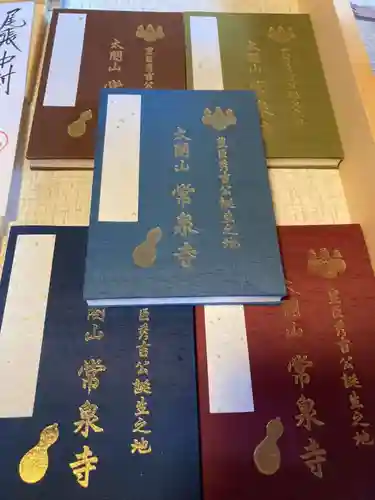 尾張中村
豊臣秀吉公誕生之地
太閤山 常
豊臣秀吉公誕生之地
太閤山 常泉寺
豊臣秀吉公誕生之地
閤山 常泉寺
豊臣秀吉公誕生之地
太閤山 常泉寺